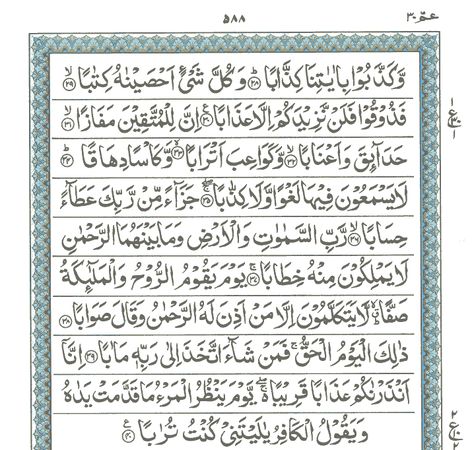 عمّ ۳۰
۵۸۸
وَّكَذَّبُوْا بِاٰيٰتِنَا كِذَّابًا ۙ﴿۲۸﴾ وَكُلَّ شَیْءٍ اَحْصَيْنٰهُ كِتٰبًا ۙ﴿۲۹﴾
فَذُوْقُوْا فَلَنْ نَّزِيْدَكُمْ اِلَّا عَذَابًا ﴿۳۰﴾ اِنَّ لِلْمُتَّقِيْنَ مَفَازًا ۙ﴿۳۱﴾
حَدَآئِقَ وَاَعْنَابًا ۙ﴿۳۲﴾ وَّكَوَاعِبَ اَتْرَابًا ۙ﴿۳۳﴾ وَّكَاْسًا دِهَاقًا ؕ﴿۳۴﴾
لَا يَسْمَعُوْنَ فِيْهَا لَغْوًا وَّلَا كِذّٰبًا ۚ﴿۳۵﴾ جَزَآءً مِّنْ رَّبِّكَ عَطَآءً
حِسَابًا ۙ﴿۳۶﴾ رَّبِّ السَّمٰوٰتِ وَالْاَرْضِ وَمَا بَيْنَهُمَا الرَّحْمٰنِ
لَا يَمْلِكُوْنَ مِنْهُ خِطَابًا ۚ﴿۳۷﴾ يَوْمَ يَقُوْمُ الرُّوْحُ وَالْمَلٰٓئِكَةُ
صَفًّا ؕۙ لَّا يَتَكَلَّمُوْنَ اِلَّا مَنْ اَذِنَ لَهُ الرَّحْمٰنُ وَقَالَ صَوَابًا ﴿۳۸﴾
ذٰلِكَ الْيَوْمُ الْحَقُّ ۚ فَمَنْ شَآءَ اتَّخَذَ اِلٰی رَبِّهٖ مَاٰبًا ﴿۳۹﴾ اِنَّاۤ
اَنْذَرْنٰكُمْ عَذَابًا قَرِيْبًا ۚۖ يَّوْمَ يَنْظُرُ الْمَرْءُ مَا قَدَّمَتْ يَدٰهُ
وَيَقُوْلُ الْكٰفِرُ يٰلَيْتَنِیْ كُنْتُ تُرٰبًا ﴿۴۰﴾